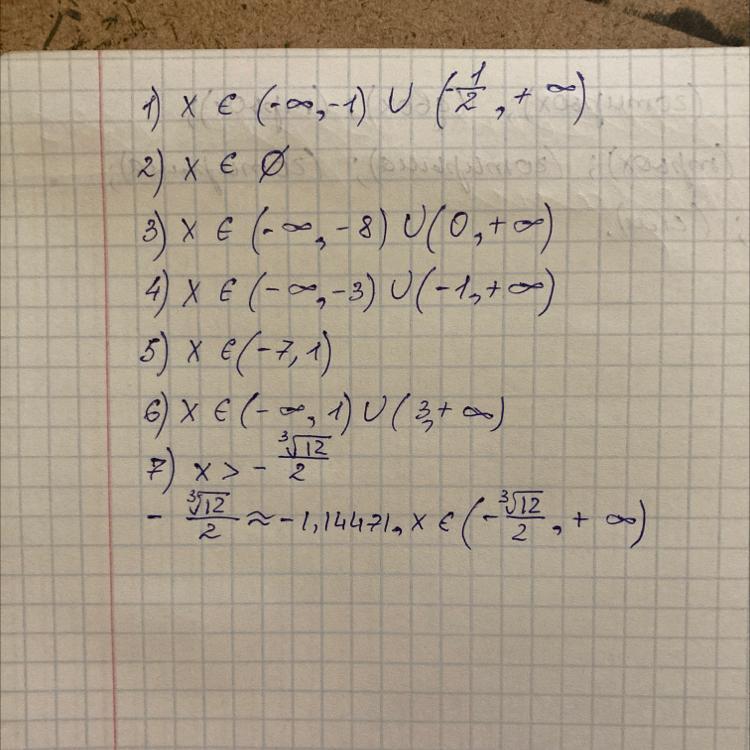 1) x ∈ (-∞, -1) ∪ (-1/2, +∞)
2) x ∈ ∅
3) x ∈ (-∞, -8) ∪ (0, +∞)
4) x ∈ (-∞, -3) ∪ (-1, +∞)
5) x ∈ (-7, 1)
6) x ∈ (-∞, 1) ∪ (3, +∞)
7) x > - ∛12/2
- ∛12/2 ≈ -1,14471, x ∈ (-∛12/2, +∞)